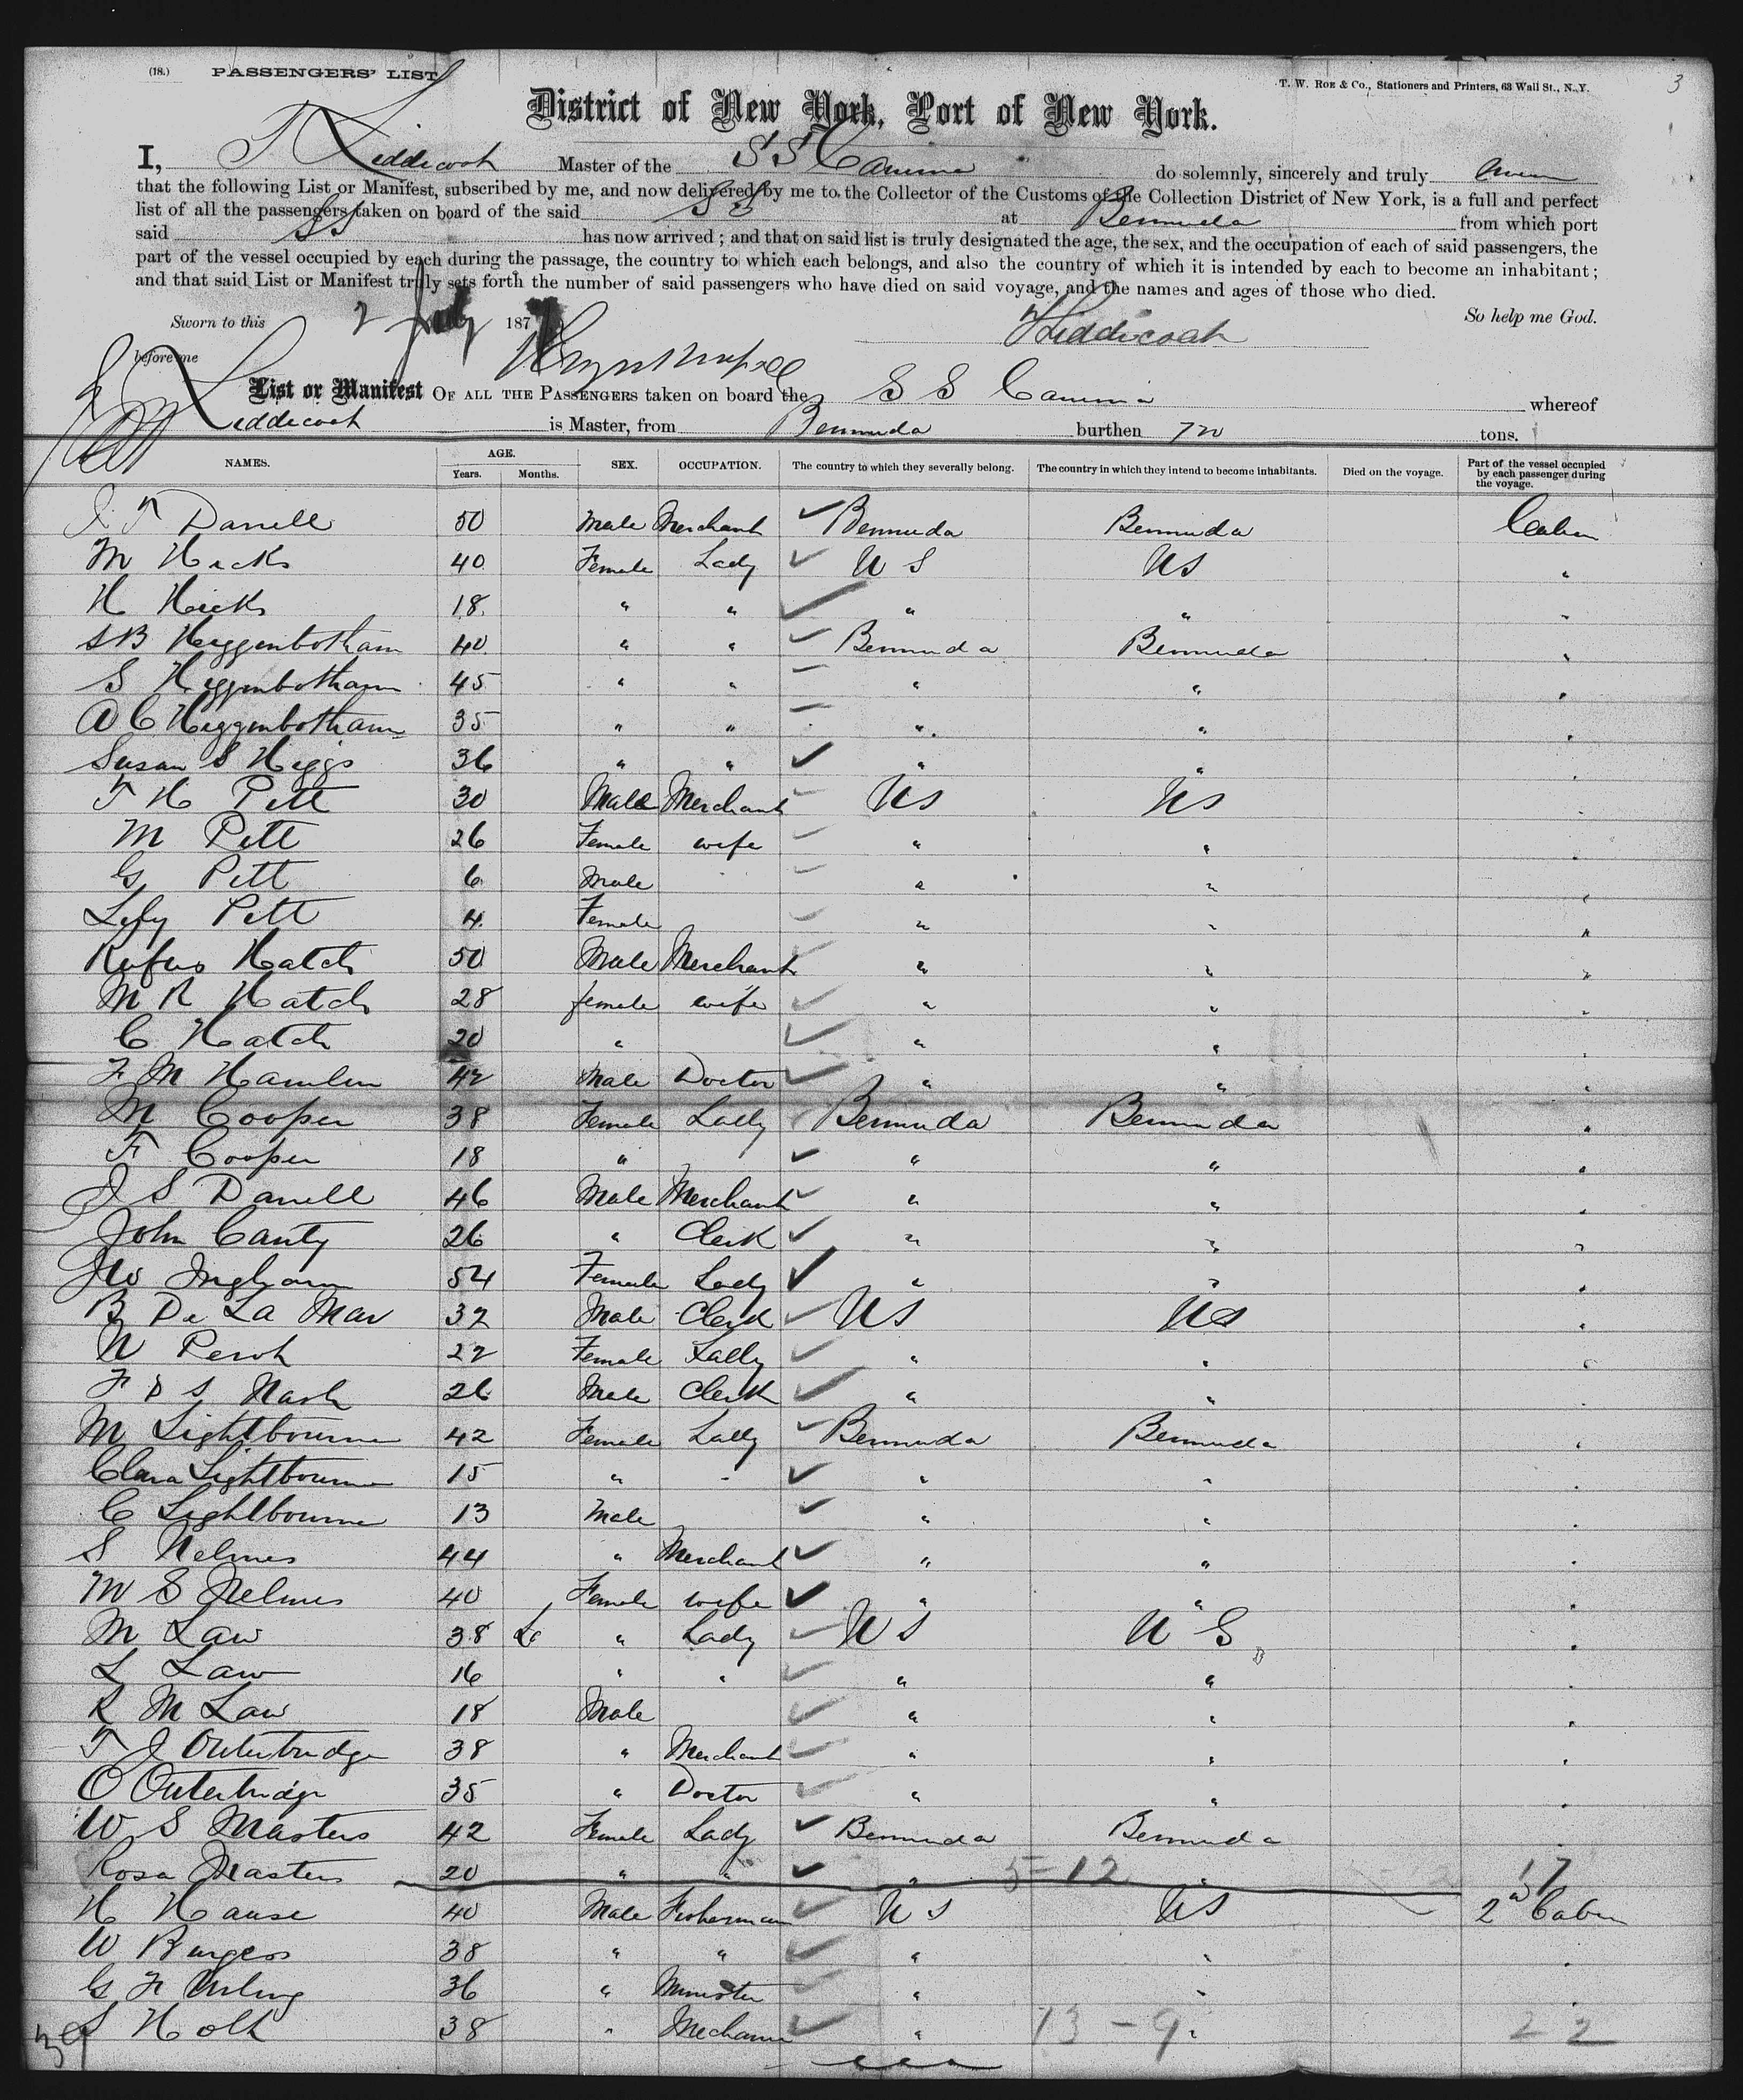 (18.) PASSENGERS' LIST
T. W. ROE & Co., Stationers and Printers, 63 Wall St., N.Y. 3
District of New York, Port of New York.
I, T Liddicoat Master of the SS Canima do solemnly, sincerely and truly
that the following List or Manifest, subscribed by me, and now delivered by me to the Collector of the Customs of the Collection District of New York, is a full and perfect
list of all the passengers taken on board of the said SS at Bermuda from which port
said SS has now arrived; and that on said list is truly designated the age, the sex, and the occupation of each of said passengers, the
part of the vessel occupied by each during the passage, the country to which each belongs, and also the country of which it is intended by each to become an inhabitant;
and that said List or Manifest truly sets forth the number of said passengers who have died on said voyage, and the names and ages of those who died.
Sworn to this 2 July 187 So help me God.
before me Liddicoat
List or Manifest OF ALL THE PASSENGERS taken on board the S S Canima whereof
Liddicoat is Master, from Bermuda burthen 720 tons.
NAMES. AGE. Years. Months. SEX. OCCUPATION. The country to which they severally belong. The country in which they intend to become inhabitants. Died on the voyage. Part of the vessel occupied by each passenger during the voyage.
J T Darrell 50 Male Merchant Bermuda Bermuda Cabin
M Hicks 40 Female Lady U S US "
H Hicks 18 " " " " "
S B Higgenbotham 40 " " Bermuda Bermuda "
S Higgenbotham 45 " " " " "
A C Higgenbotham 35 " " " " "
Susan S Higgs 36 " " " "
T H Pitt 30 Male Merchant US US
M Pitt 26 Female wife " "
G Pitt 6 Male " "
Lily Pitt 4 Female " " "
Rufus Hatch 50 Male Merchant " " "
M R Hatch 28 female wife " " "
C Hatch 20 " " "
F M Hamlin 42 Male Doctor " " "
M Cooper 38 Female Lady Bermuda Bermuda "
F Cooper 18 " " " "
J S Darrell 46 Male Merchant " " "
John Canty 26 " Clerk " " "
Ingham 54 Female Lady " " "
B De La Mar 32 Male Clerk US US "
N 22 Female Lady " " "
F S Nash 26 Male Clerk " "
M Lightbourne 42 Female Lady Bermuda Bermuda "
Clara Lightbourne 15 " " " "
C Lightbourne 13 Male " " "
S Nelmes 44 " Merchant " " "
M S Nelmes 40 Female wife " "
M Law 38 " Lady U S U S "
L Law 16 " " " " "
R M Law 18 Male " " "
T J Outerbridge 38 " Merchant " " "
O Outerbridge 35 " Doctor " " "
W S Masters 42 Female Lady Bermuda Bermuda
Rosa Masters 20 " " " 5-12 " 17
H Hause 40 Male Fisherman U S US 2nd Cabin
W Burgess 38 " " " " "
G F 36 " Minister " " "
S Holt 38 " Mechanic " 13-9 " 22
39